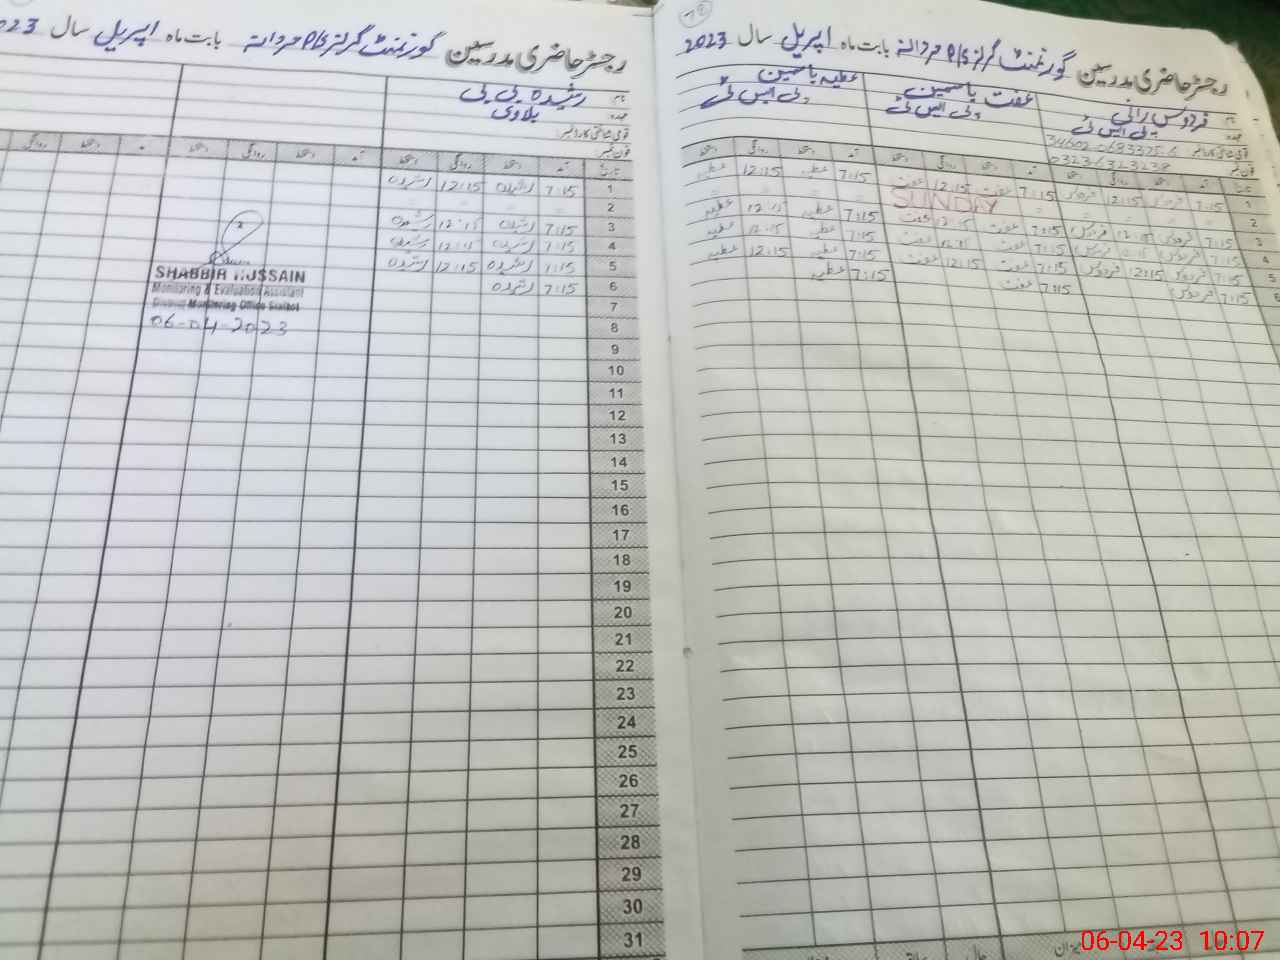 رجسٹر حاضری مدرسین گورنمنٹ گرلز P/S مردانہ بابت ماہ اپریل سال 2023
نام فردوس رانی عفت یاسمین عطیہ یاسمین
عہدہ پی ایس ٹی پی ایس ٹی پی ایس ٹی
قومی شناختی کارڈ نمبر
فون نمبر 03236323238
تاریخ آمد دستخط روانگی دستخط آمد دستخط روانگی دستخط آمد دستخط روانگی دستخط
1 7:15 فردوس 12:15 فردوس 7:15 عفت 12:15 عفت 7:15 عطیہ 12:15 عطیہ
2 SUNDAY
3 7:15 فردوس 12:15 فردوس 7:15 عفت 12:15 عفت 7:15 عطیہ 12:15 عطیہ
4 7:15 فردوس 12:15 فردوس 7:15 عفت 12:15 عفت 7:15 عطیہ 12:15 عطیہ
5 7:15 فردوس 12:15 فردوس 7:15 عفت 12:15 عفت 7:15 عطیہ 12:15 عطیہ
6 7:15 فردوس 7:15 عفت 7:15 عطیہ
رجسٹر حاضری مدرسین گورنمنٹ گرلز P/S مردانہ بابت ماہ اپریل سال 2023
نام رشیدہ بی بی
عہدہ بلاوی
قومی شناختی کارڈ نمبر
فون نمبر
تاریخ آمد دستخط روانگی دستخط آمد دستخط روانگی دستخط آمد دستخط روانگی
1 7:15 رشیدہ 12:15 رشیدہ
2
3 7:15 رشیدہ 12:15 رشیدہ
4 7:15 رشیدہ 12:15 رشیدہ
5 7:15 رشیدہ 12:15 رشیدہ
6 7:15 رشیدہ
7
8
9
10
11
12
13
14
15
16
17
18
19
20
21
22
23
24
25
26
27
28
29
30
31
SHABBIR HUSSAIN
Monitoring & Evaluation Assistant
District Monitoring Office Sialkot
06-04-2023
06-04-23 10:07